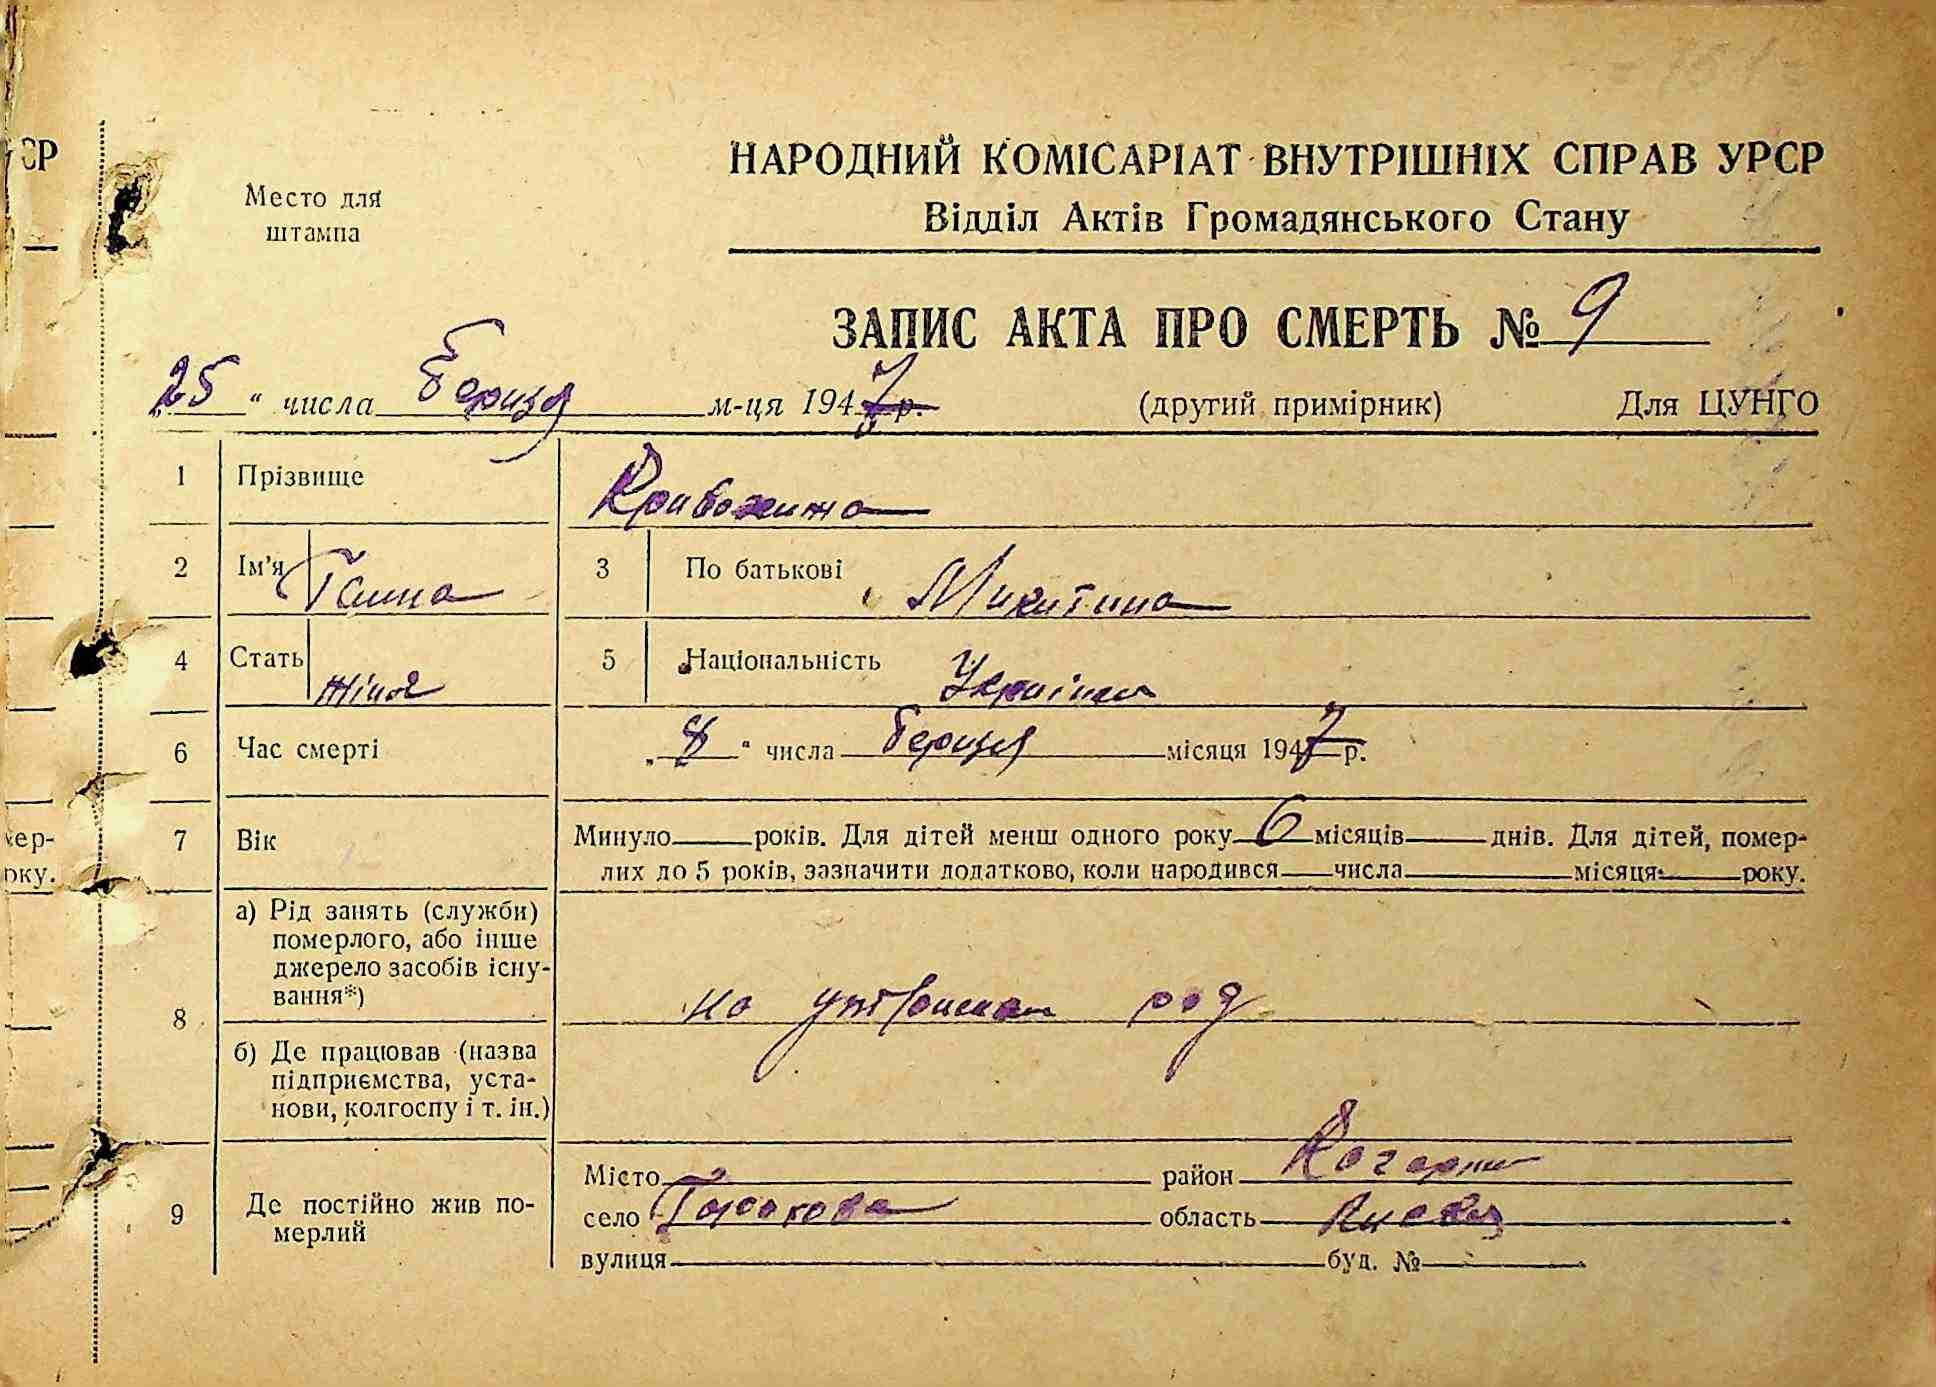 СР
Место для
штампа
НАРОДНИЙ КОМІСАРІАТ ВНУТРІШНІХ СПРАВ УРСР
Відділ Актів Громадянського Стану
ЗАПИС АКТА ПРО СМЕРТЬ № 9
„25“ числа берізня м-ця 1947 р. (другий примірник) Для ЦУНГО
1 Прізвище
2 Ім'я Ганна 3 По батькові Микитина
4 Стать жіноч 5 Національність Українка
6 Час смерті „8“ числа берізня місяця 1947 р.
7 Вік Минуло років. Для дітей менш одного року 6 місяців днів. Для дітей, помер-
лих до 5 років, зазначити додатково, коли народився числа місяця року.
мер-
оку.
8 а) Рід занять (служби)
померлого, або інше
джерело засобів існу-
вання*)
на утриман род
б) Де працював (назва
підприємства, уста-
нови, колгоспу і т. ін.)
9 Де постійно жив по-
мерлий
Місто район Кагарли
село область Київся
вулиця буд. №